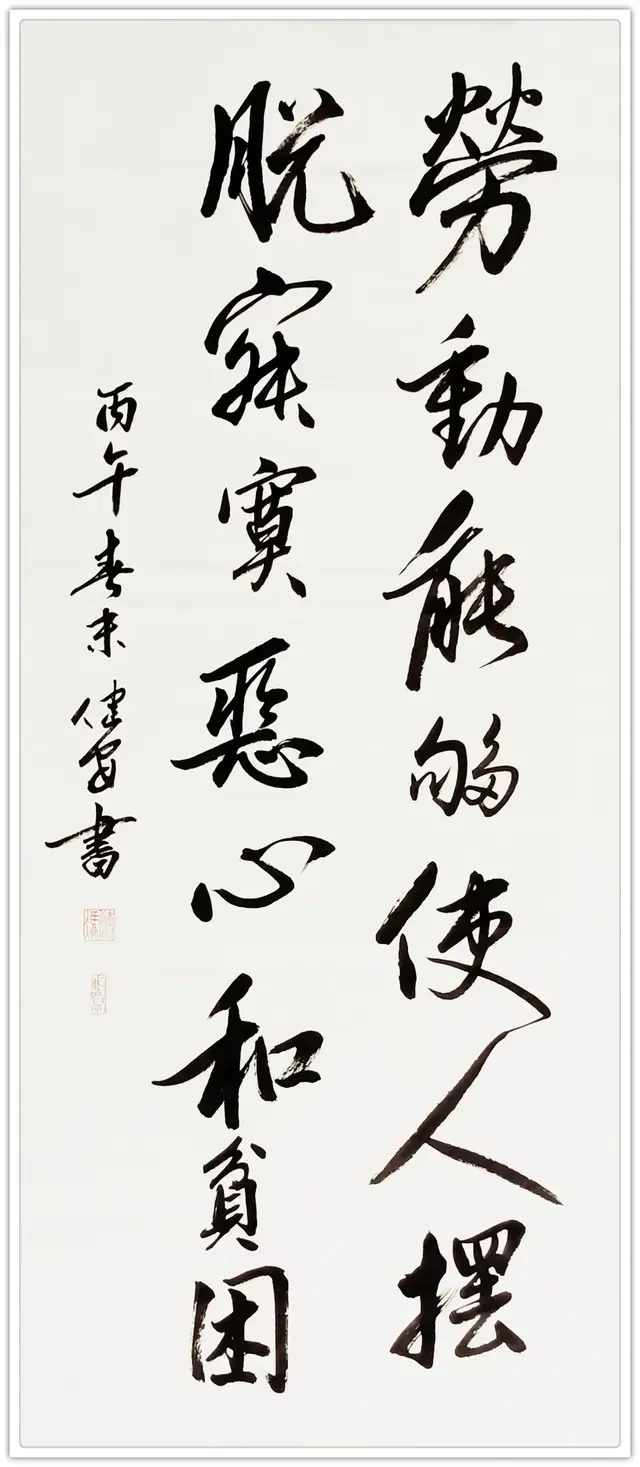 勞動能够使人摆
脱寂寞惡心和貧困
丙午春末健安書